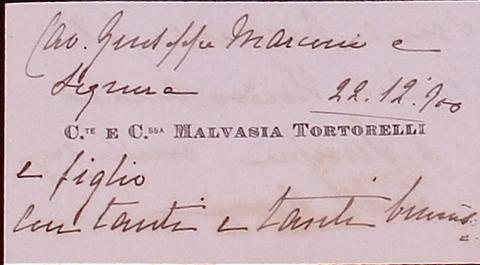 Cav. Giuseppe Marconi e
Signora
22.12.900
C.TE E C.SSA MALVASIA TORTORELLI
e figlio
con tanti e tanti